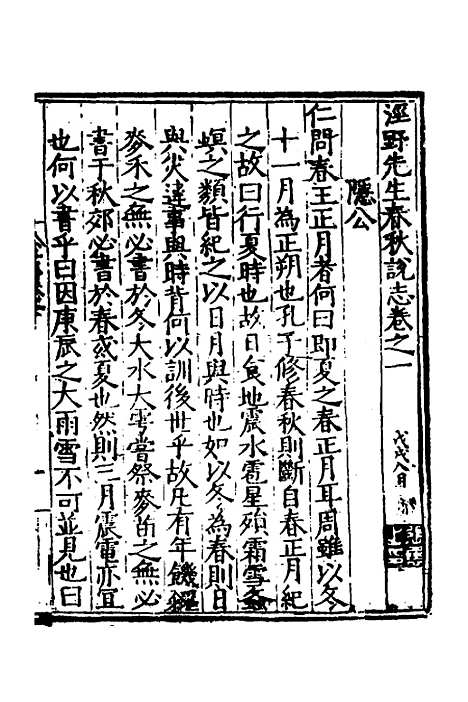 涇野先生春秋說志卷之一
戊戌八月
隱公
仁問春王正月者何曰即夏之春正月耳周雖以冬
十一月為正朔也孔子修春秋則斷自春正月紀
之故曰行夏時也故日食地震水雹星殞霜雪螽
螟之類皆紀之以日月與時也如以冬為春則日
與災違事與時背何以訓後世乎故凡有年饑
麥禾之無必書於冬大水大雩嘗祭麥苗之無必
書于秋郊必書於春或夏也然則三月震電亦宜
也何以書乎曰因庚辰之大雨雪不可並見也曰